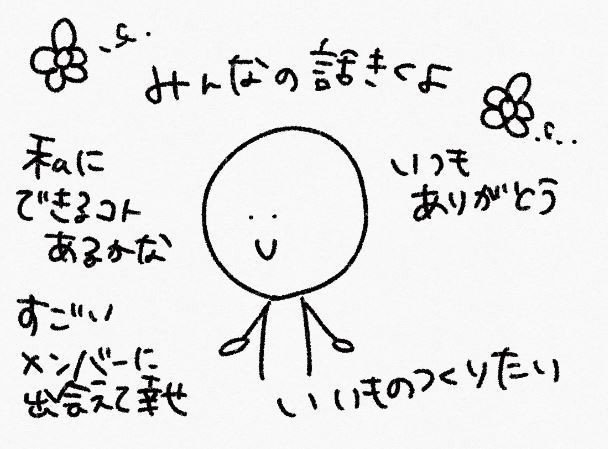 みんなの話きくよ
私に
できるコト
あるかな
いつも
ありがとう
すごい
メンバーに
出会えて幸せ
いいものつくりたい